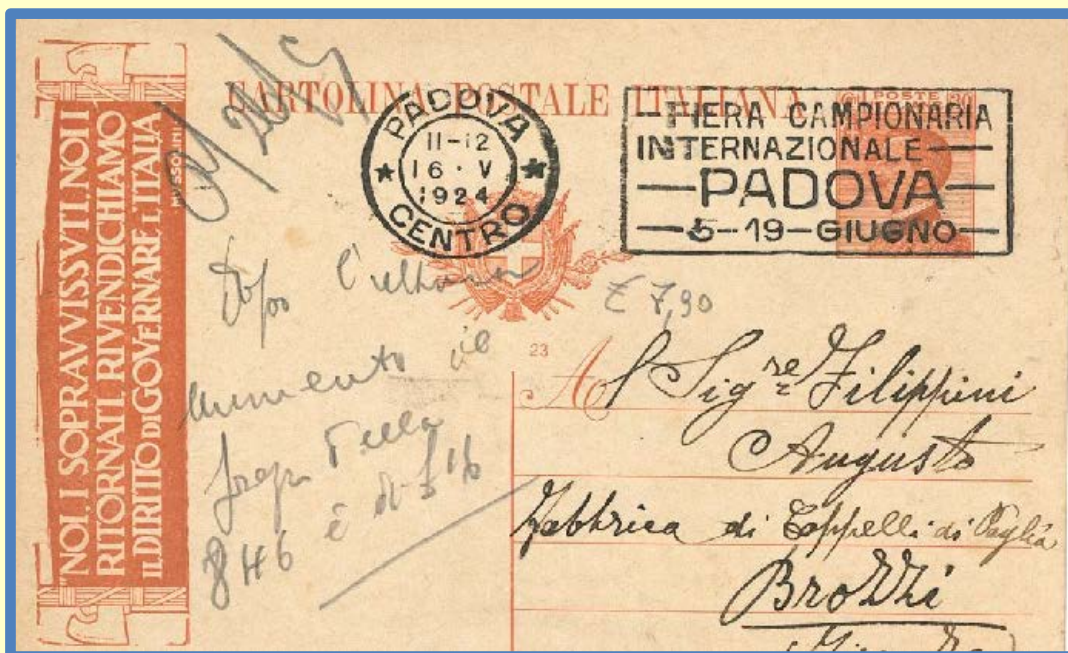 "NOI, I SOPRAVVISSUTI, NOI I
RITORNATI, RIVENDICHIAMO
IL DIRITTO DI GOVERNARE L'ITALIA
MUSSOLINI
CARTOLINA POSTALE ITALIANA
PADOVA
11-12
16·V
1924
CENTRO
FIERA CAMPIONARIA
INTERNAZIONALE
PADOVA
5-19-GIUGNO
POSTE
Dopo l'ultimo
aumento
£ 7,90
è di
846
23
Al Sigre Filippini
Augusto
Fabbrica di Cappelli di Paglia
Brozzi